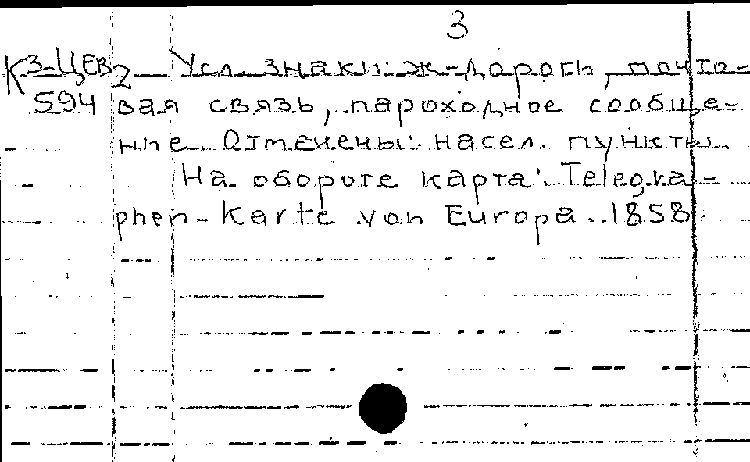 3
К 3-ЦЕВ 2 Усл. знаки: ж-дороги, почто-
594 вая связь, пароходное сообще-
ние. Отмечены насел. пункты.
На обороте карта: Telegra-
phen-Karte von Europa. 1858.